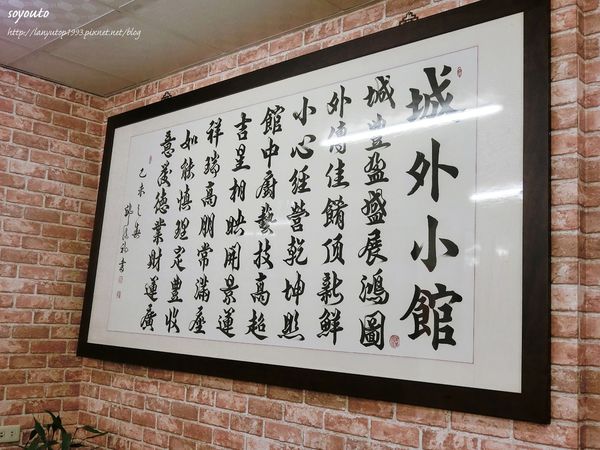 soyouto
http://lanyutop1993.pixnet.net/blog
城外小館
城豊盈盛展鴻圖
外傳佳餚頂新鮮
小心經營乾坤照
館中廚藝技高超
吉星相照開景運
祥瑞高朋常滿座
如能慎理定豐收
意德業財運廣
未之年
書